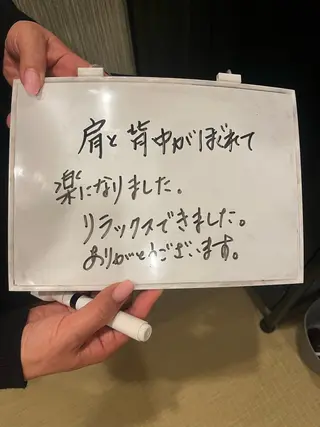 肩と背中がほぐれて
楽になりました。
リラックスできました。
ありがとうございます。